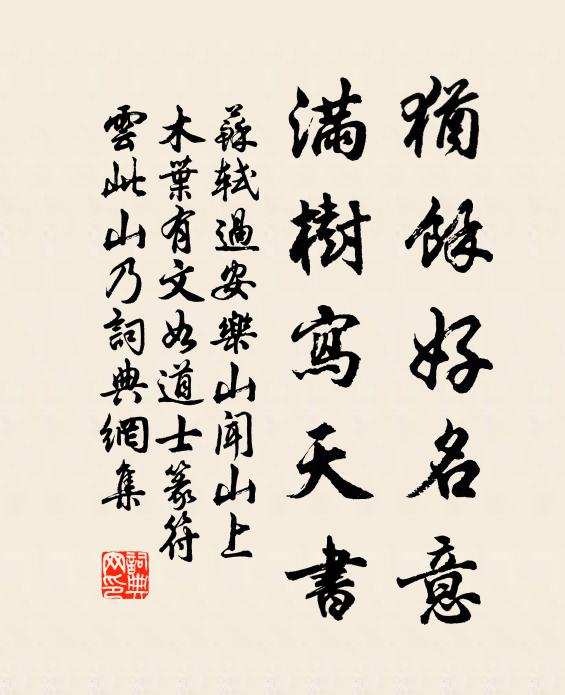 猶餘好名意
滿樹寫天書
蘇軾過安樂山聞山上
木葉有文如道士篆符
雲此山乃詞典網集
詞典網印